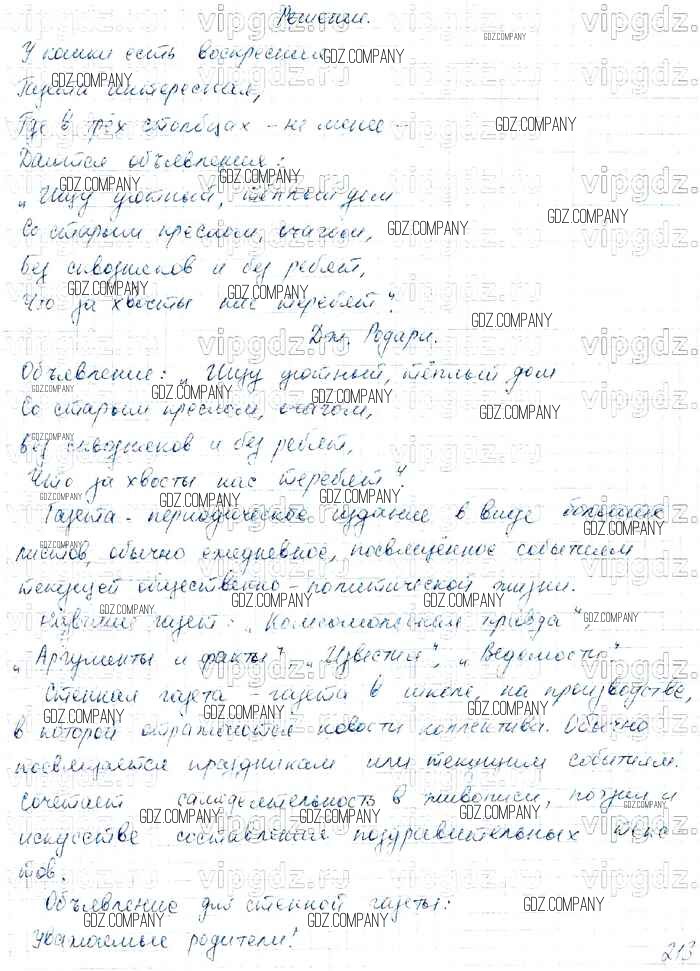 Решение.
У кошки есть воскресная
Газета интересная,
Где в трёх столбцах – не менее –
Даются объявления:
„Ищу уютный, тёплый дом
Со старым креслом, очагом,
Без сквозняков и без ребят,
Что за хвосты нас теребят".
Дж. Родари.
Объявление: „Ищу уютный, тёплый дом
Со старым креслом, очагом,
Без сквозняков и без ребят,
Что за хвосты нас теребят".
Газета - периодическое издание в виде больших
листов, обычно ежедневное, посвящённое событиям
текущей общественно-политической жизни.
Название газет: „Комсомольская правда",
„Аргументы и факты", „Известия", „Ведомости"
Стенная газета - газета в школе, на производстве,
в которой отражаются новости коллектива. Обычно
посвящается праздникам или текущим событиям.
Сочетает самодеятельность в живописи, поэзии и
искусстве составления поздравительных текс
тов.
Объявление для стенной газеты:
Уважаемые родители!
213
vipgdz.ru
GDZ.COMPANY